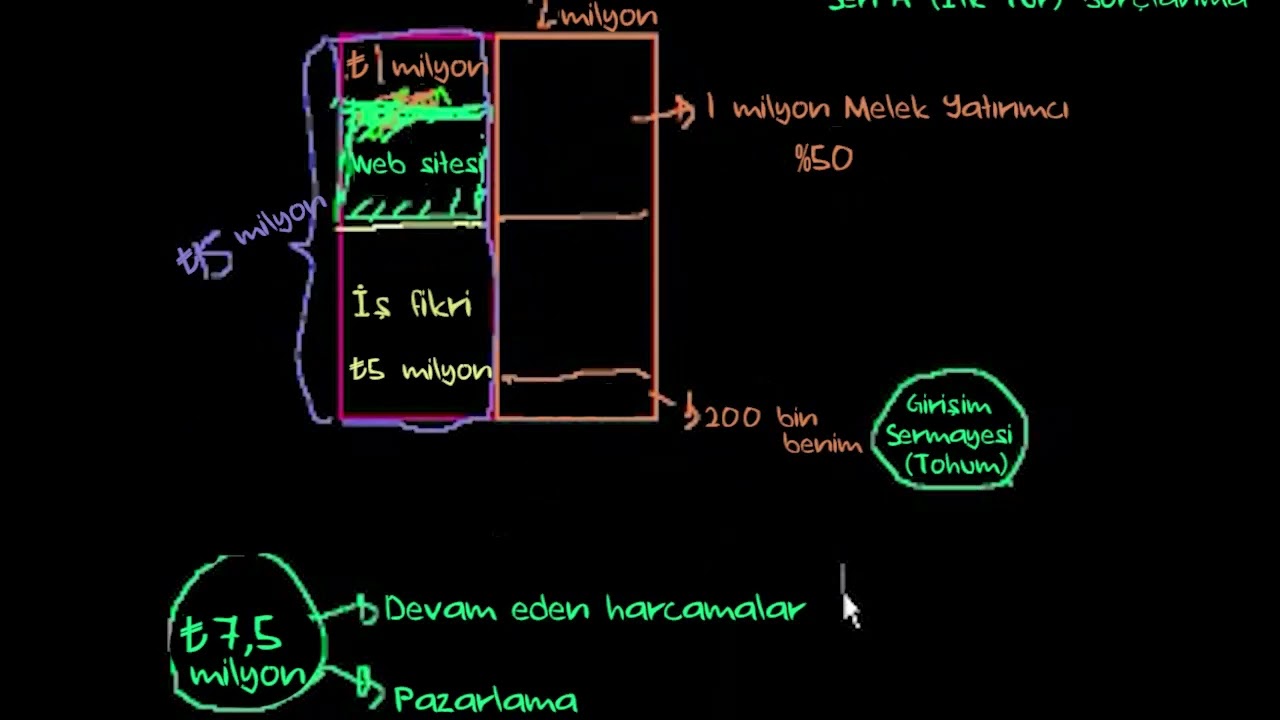 milyon
₺1 milyon
1 milyon Melek Yatırımcı
%50
Web sitesi
₺5 milyon
İş fikri
₺5 milyon
200 bin
benim
Girişim
Sermayesi
(Tohum)
₺7,5
milyon
Devam eden harcamalar
Pazarlama